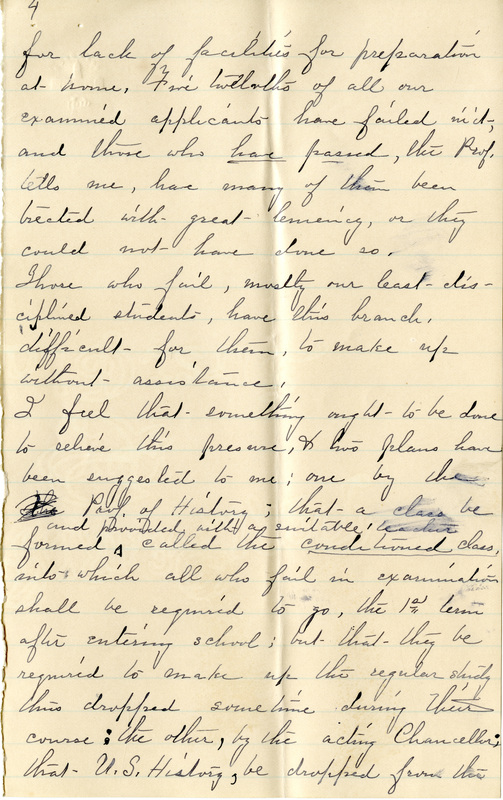 4
for lack of facilities for preparation
at home. Five twelfths of all our
examined applicants have failed in it,
and those who have passed, the Prof.
tells me, have many of them been
treated with great leniency, or they
could not have done so.
Those who fail, mostly our least dis-
ciplined students, have this branch,
difficult for them, to make up
without assistance.
I feel that something ought to be done
to relieve this pressure, & two plans have
been suggested to me; one by the
the Prof. of History; that a class be
and provided with a suitable teacher
formed called the conditioned class,
into which all who fail in examination
shall be required to go, the 1st term
after entering school; but that they be
required to make up the regular study
thus dropped sometime during their
course; the other, by the acting Chancellor;
that U.S. History, be dropped from the